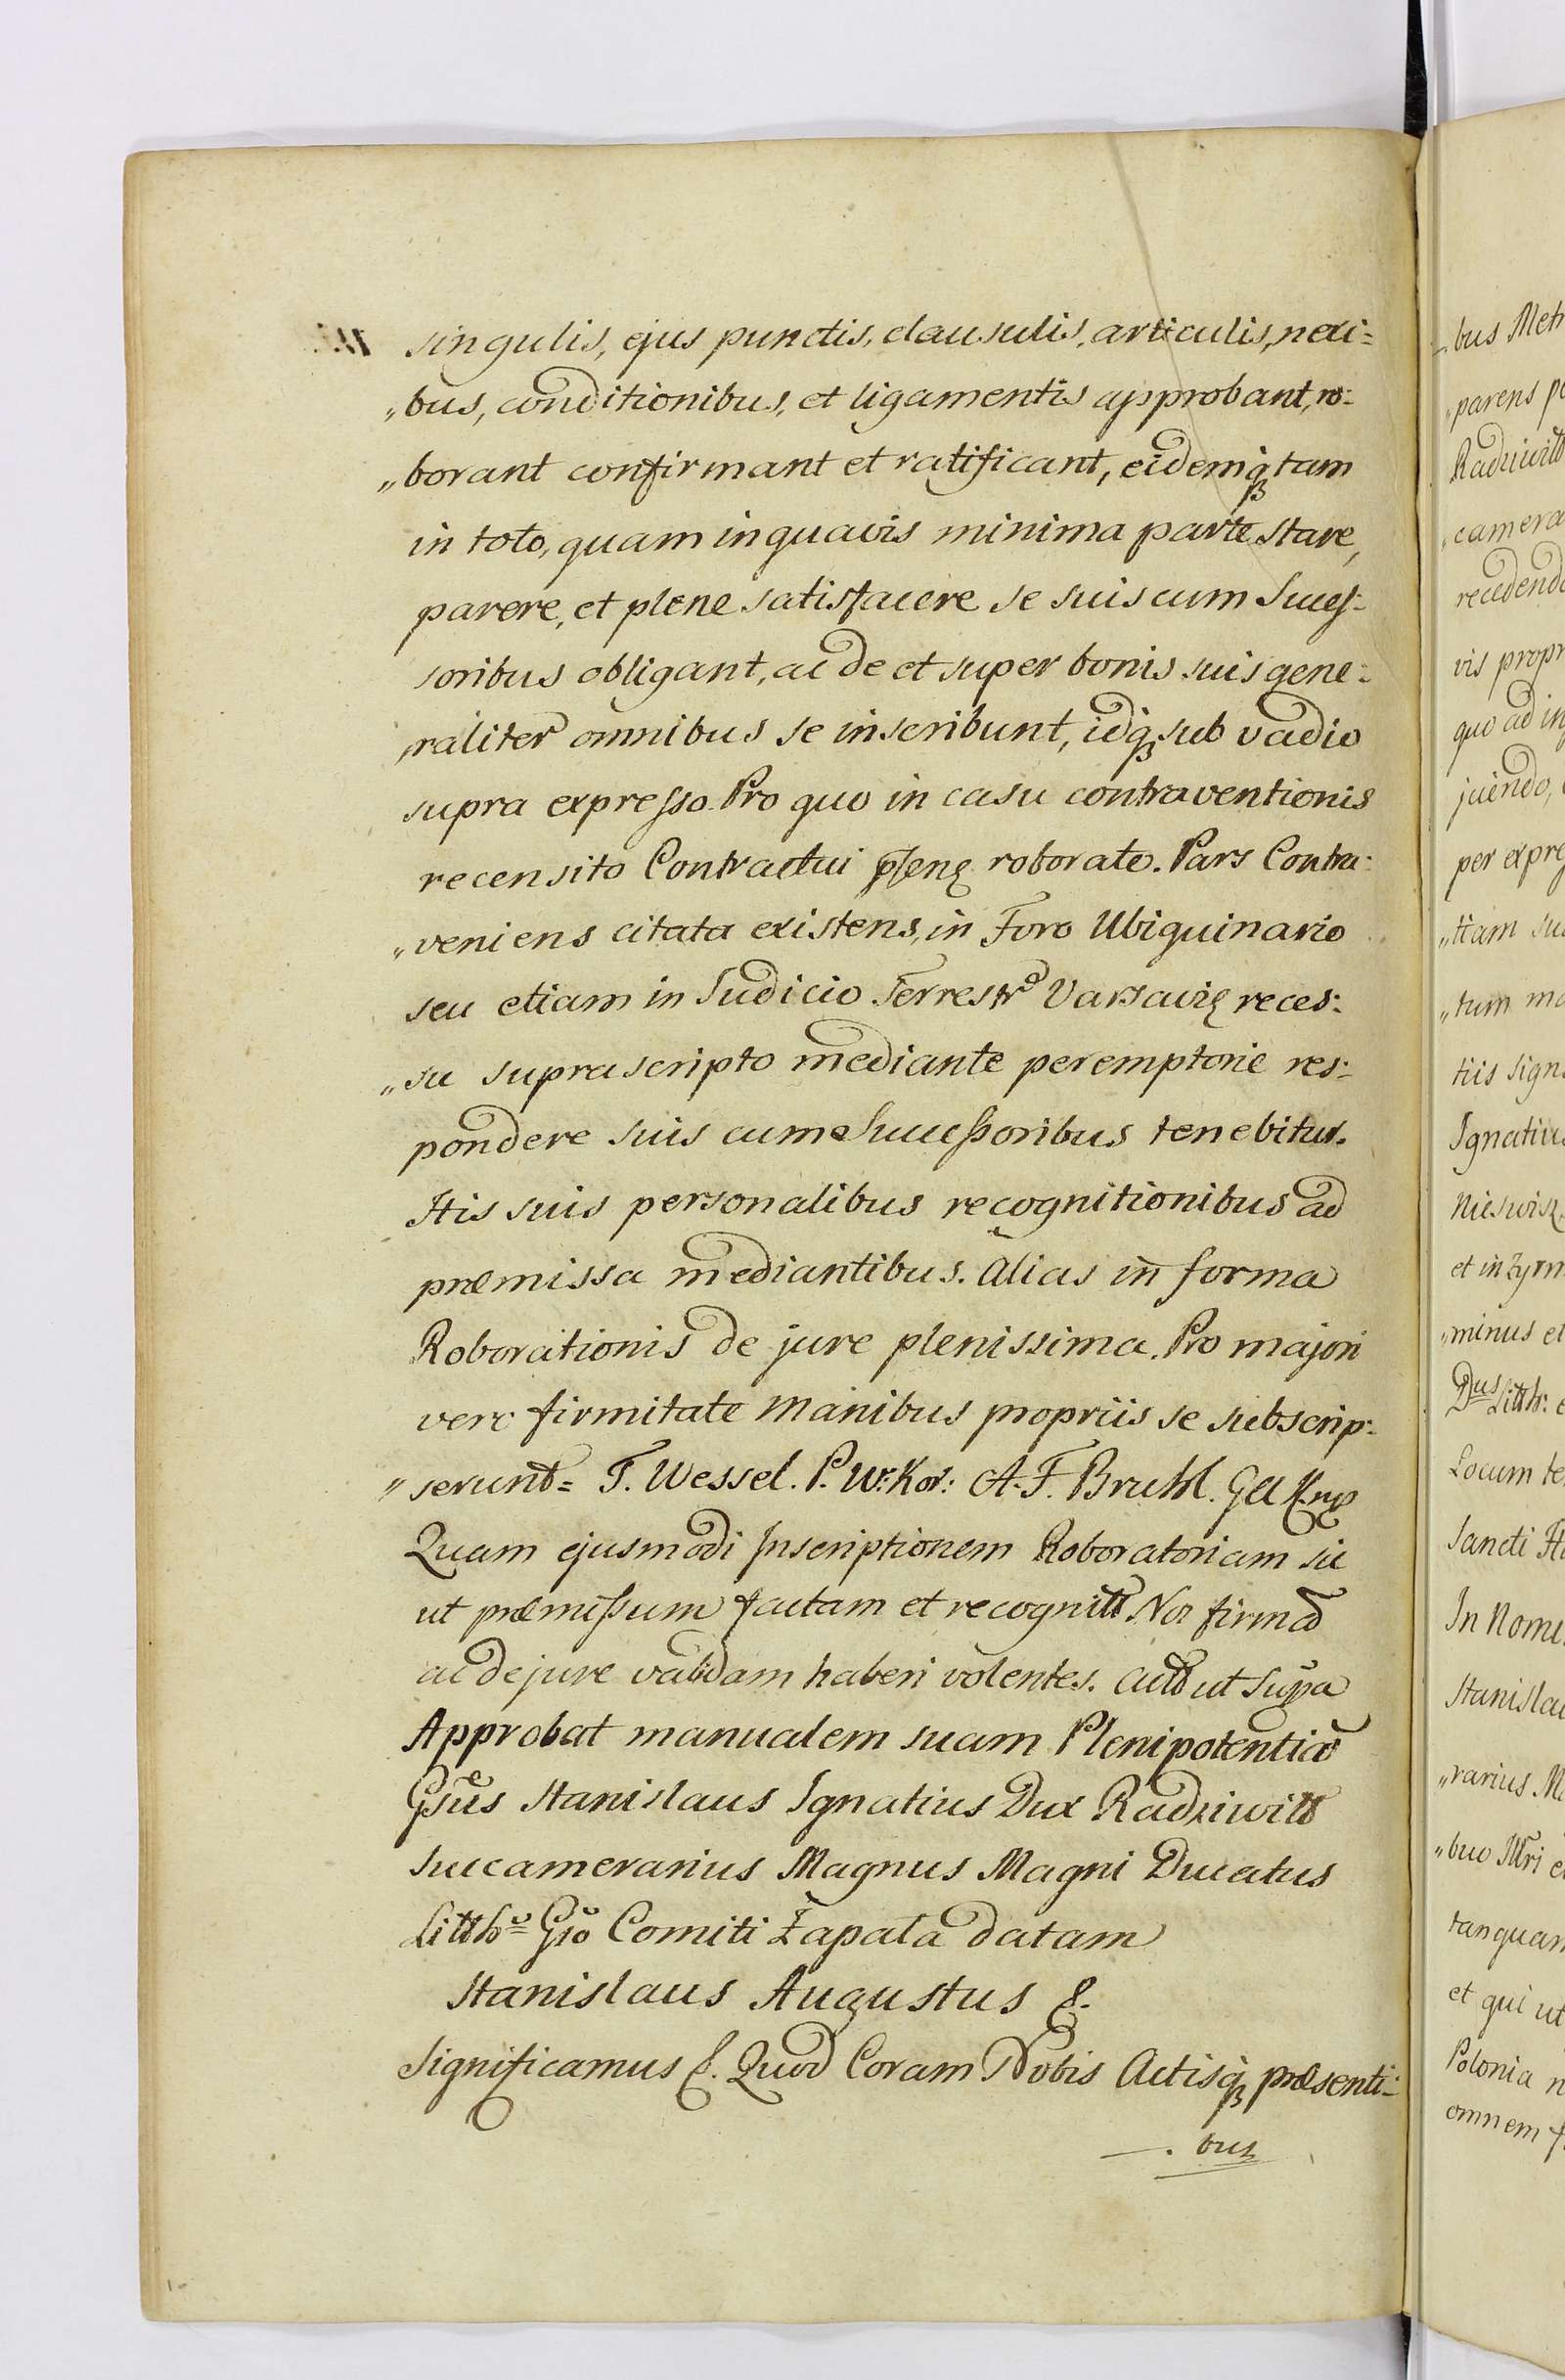 singulis, ejus punctis, clausulis, articulis, nexi=
„bus, conditionibus, et ligamentis approbant, ro=
„borant confirmant et ratificant, eidemq tam
in toto, quam in quavis minima parte stare,
parere, et plene satisfacere se suis cum Succes=
soribus obligant, ac de et super bonis suis gene=
raliter omnibus se inscribunt, idq sub vadio
supra expresso. Pro quo in casu contraventionis
recensito Contractui roborato. Pars Contra=
„veniens citata existens, in Foro Ubiquinario
seu etiam in Judicio Terrestr̃ Varsavię reces=
„su suprascripto mediante peremptorie res=
pondere suis cum Successoribus tenebitur.
His suis personalibus recognitionibus ad
præmissa mediantibus. Alias in forma
Roborationis de jure plenissima. Pro majori
vero firmitate manibus propriis se subscrip=
„serunt= T. Wessel. P. W: Kor: A. F. Bruhl.
Quam ejusmodi Inscriptionem Roboratoriam sic
ut præmissum factam et recognitt Nos firmã
ac de jure validam haberi volentes. Actt ut Supa
Approbat manualem suam Plenipotentiã
Gsũs Stanislaus Ignatius Dux Radziwiłł
Succamerarius Magnus Magni Ducatus
Litth= Gsõ Comiti Łapata datam
Stanislaus Augustus &.
Significamus &. Quod Coram Nobis Actisq præsenti=
—. bus
bus Met
parens p
Radziwiłł
camera
recedend
vis propr
quo ad in
juendo,
per expre
„tiam su
„tum ma
tiis sign
Ignatius
Nieswisz
et in Zyrm
„minus et
Dus Litth: e
Locum te
Sancti H
In Nomi
Stanislau
„rarius M
„buo e
tanquam
et qui ut
Polonia n
omnem f